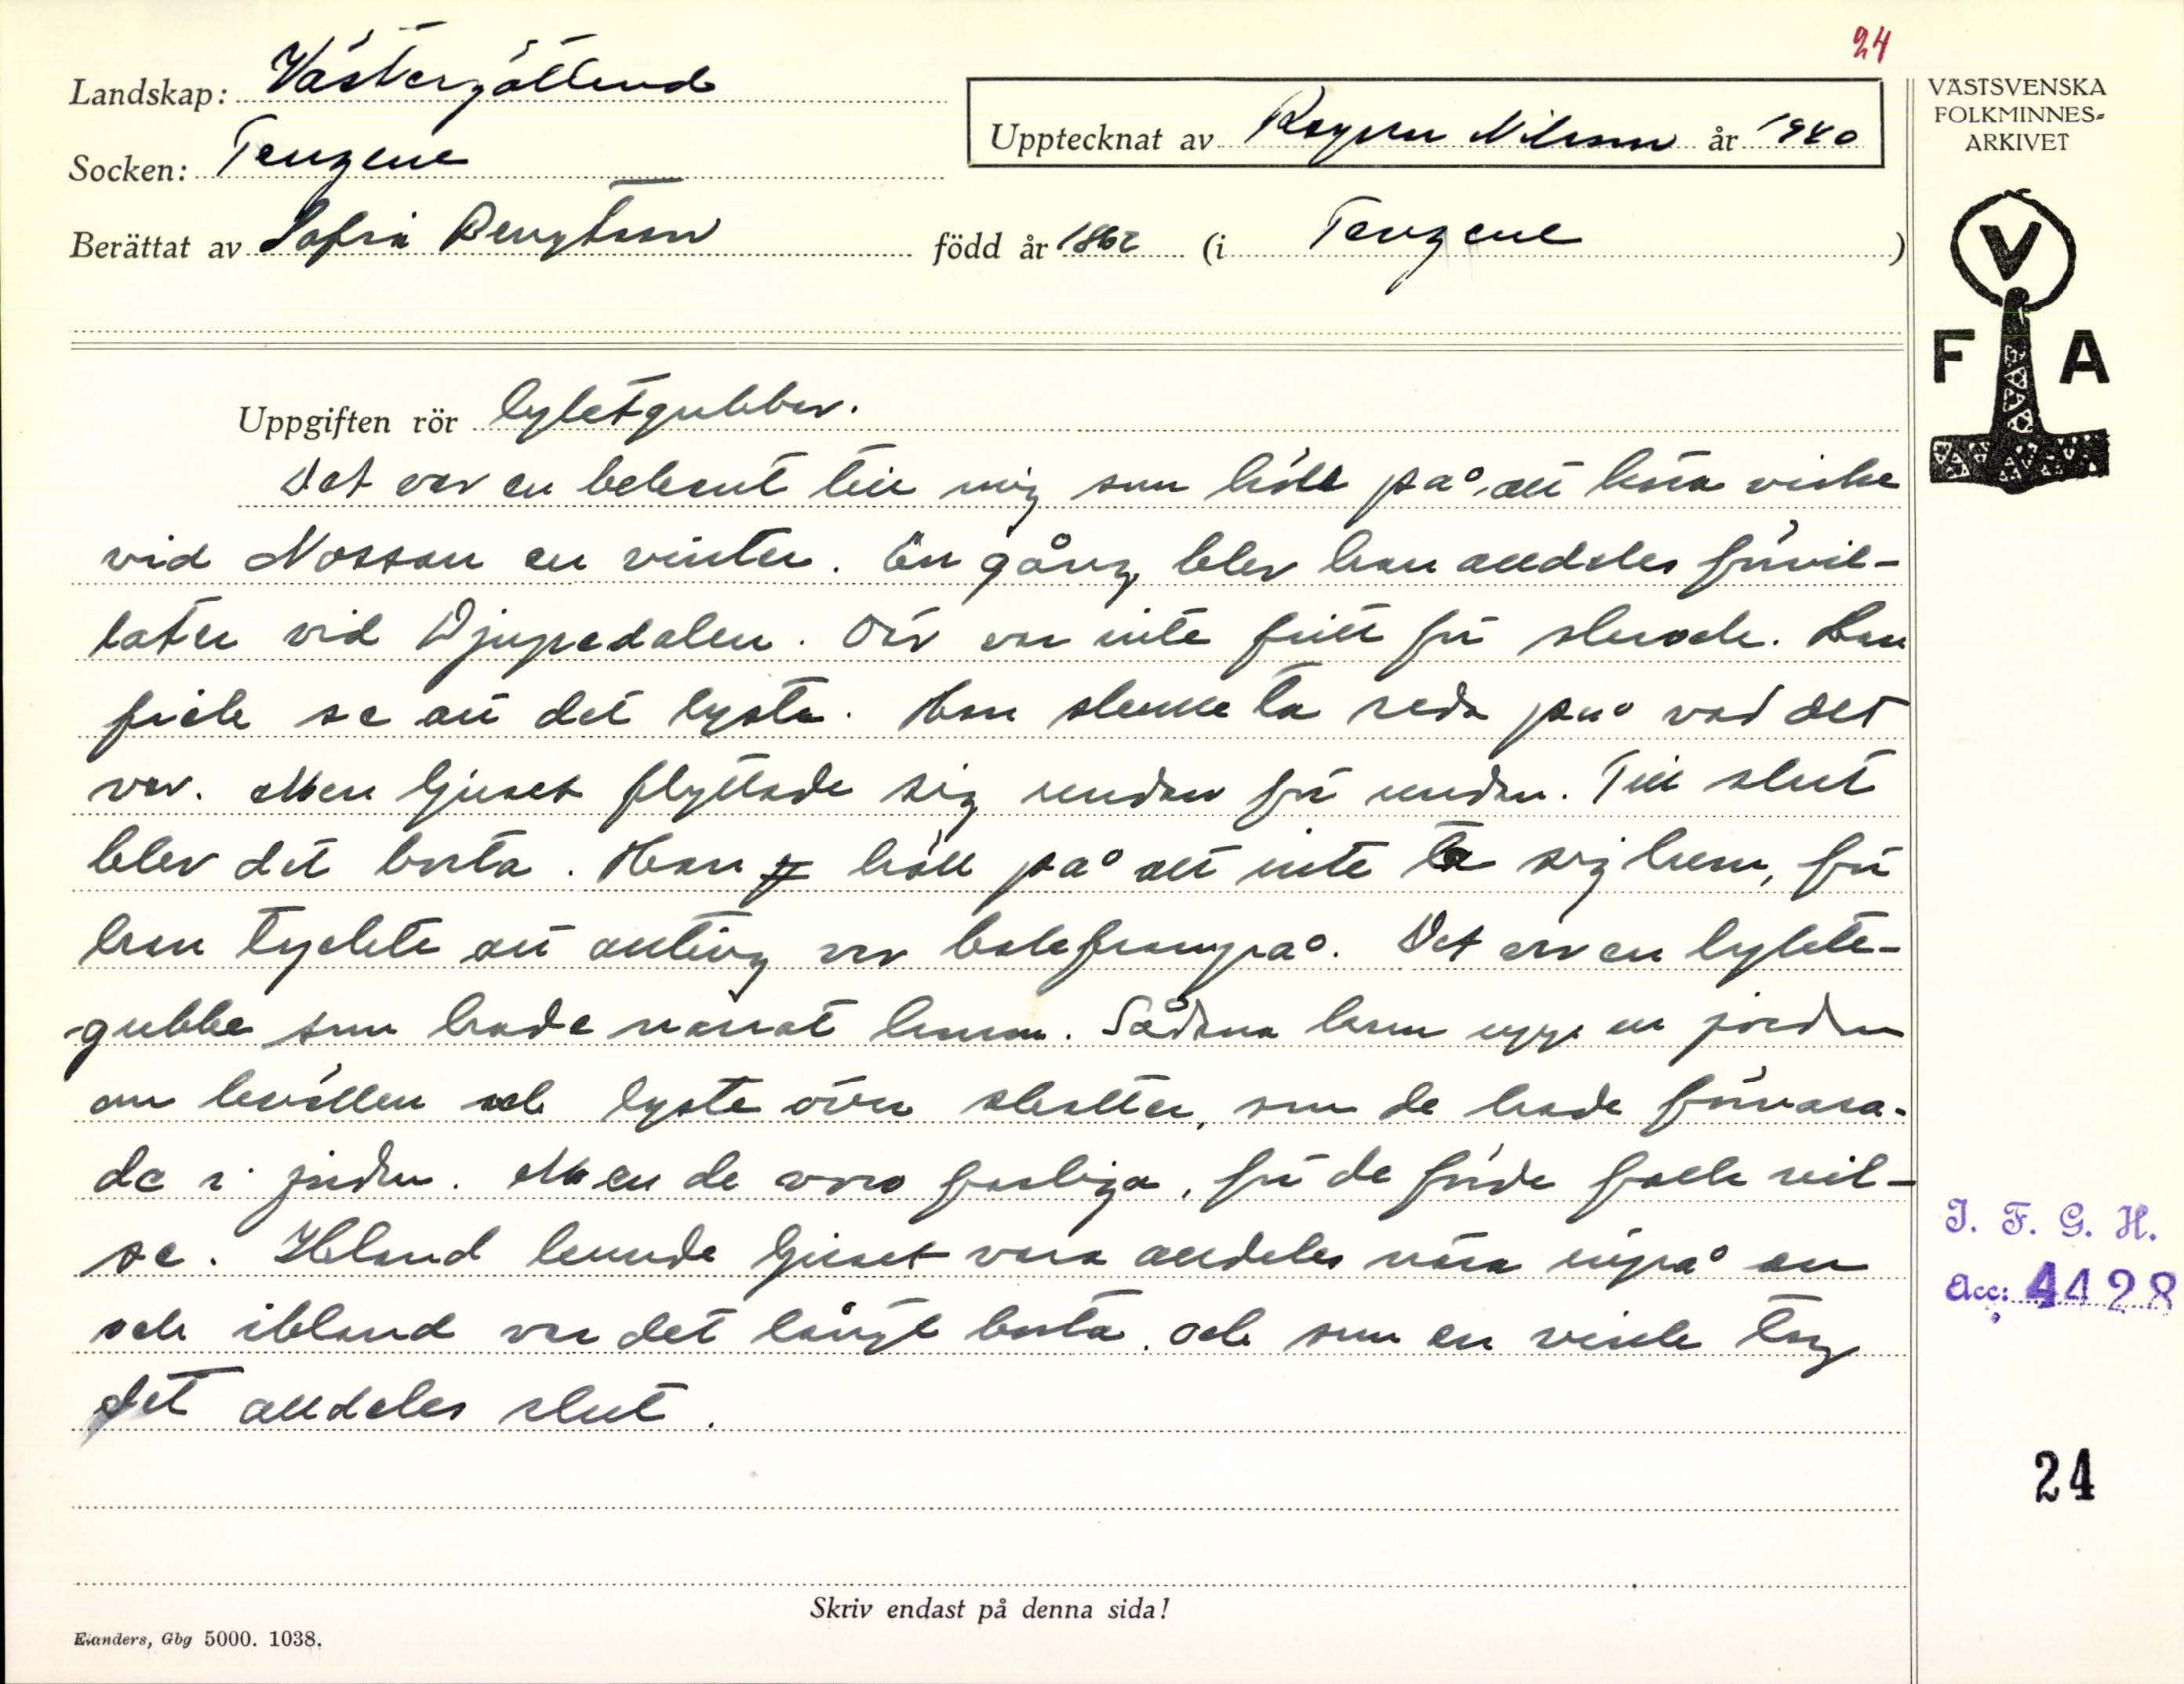 24
Landskap: Västergötland
Upptecknat av Ragnar Nilsson år 1940
Socken: Tengene
Berättat av Sofia Bengtsson född år 1862 (i Tengene)
VÄSTSVENSKA
FOLKMINNES-
ARKIVET
V
F A
Uppgiften rör lyktgubbar.
Det var en bekant till mig som höll på att köra virke
vid Nossan en vinter. En gång blev han alldeles förvil-
later vid Djupedalen. Där var inte fritt för skrock. Han
fick se att det lyste. Han skulle ta reda på vad det
var. Men ljuset flyttade sig undan för undan. Till slut
blev det borta. Han höll på att inte ta sig hem, för
han tyckte att allting var bakframpå. Det var en lykte-
gubbe som hade narrat honom. Sådana kom upp ur jorden
om kvällen och lyste över skatter, som de hade förvara-
de i jorden. Men de voro farliga, för de förde folk vil-
se. Ibland kunde ljuset vara alldeles nära inpå en
och ibland var det långt borta. och som en vink tog
det alldeles slut.
I. F. G. H.
Acc: 4428
24
Skriv endast på denna sida!
Elanders, Gbg 5000. 1038.